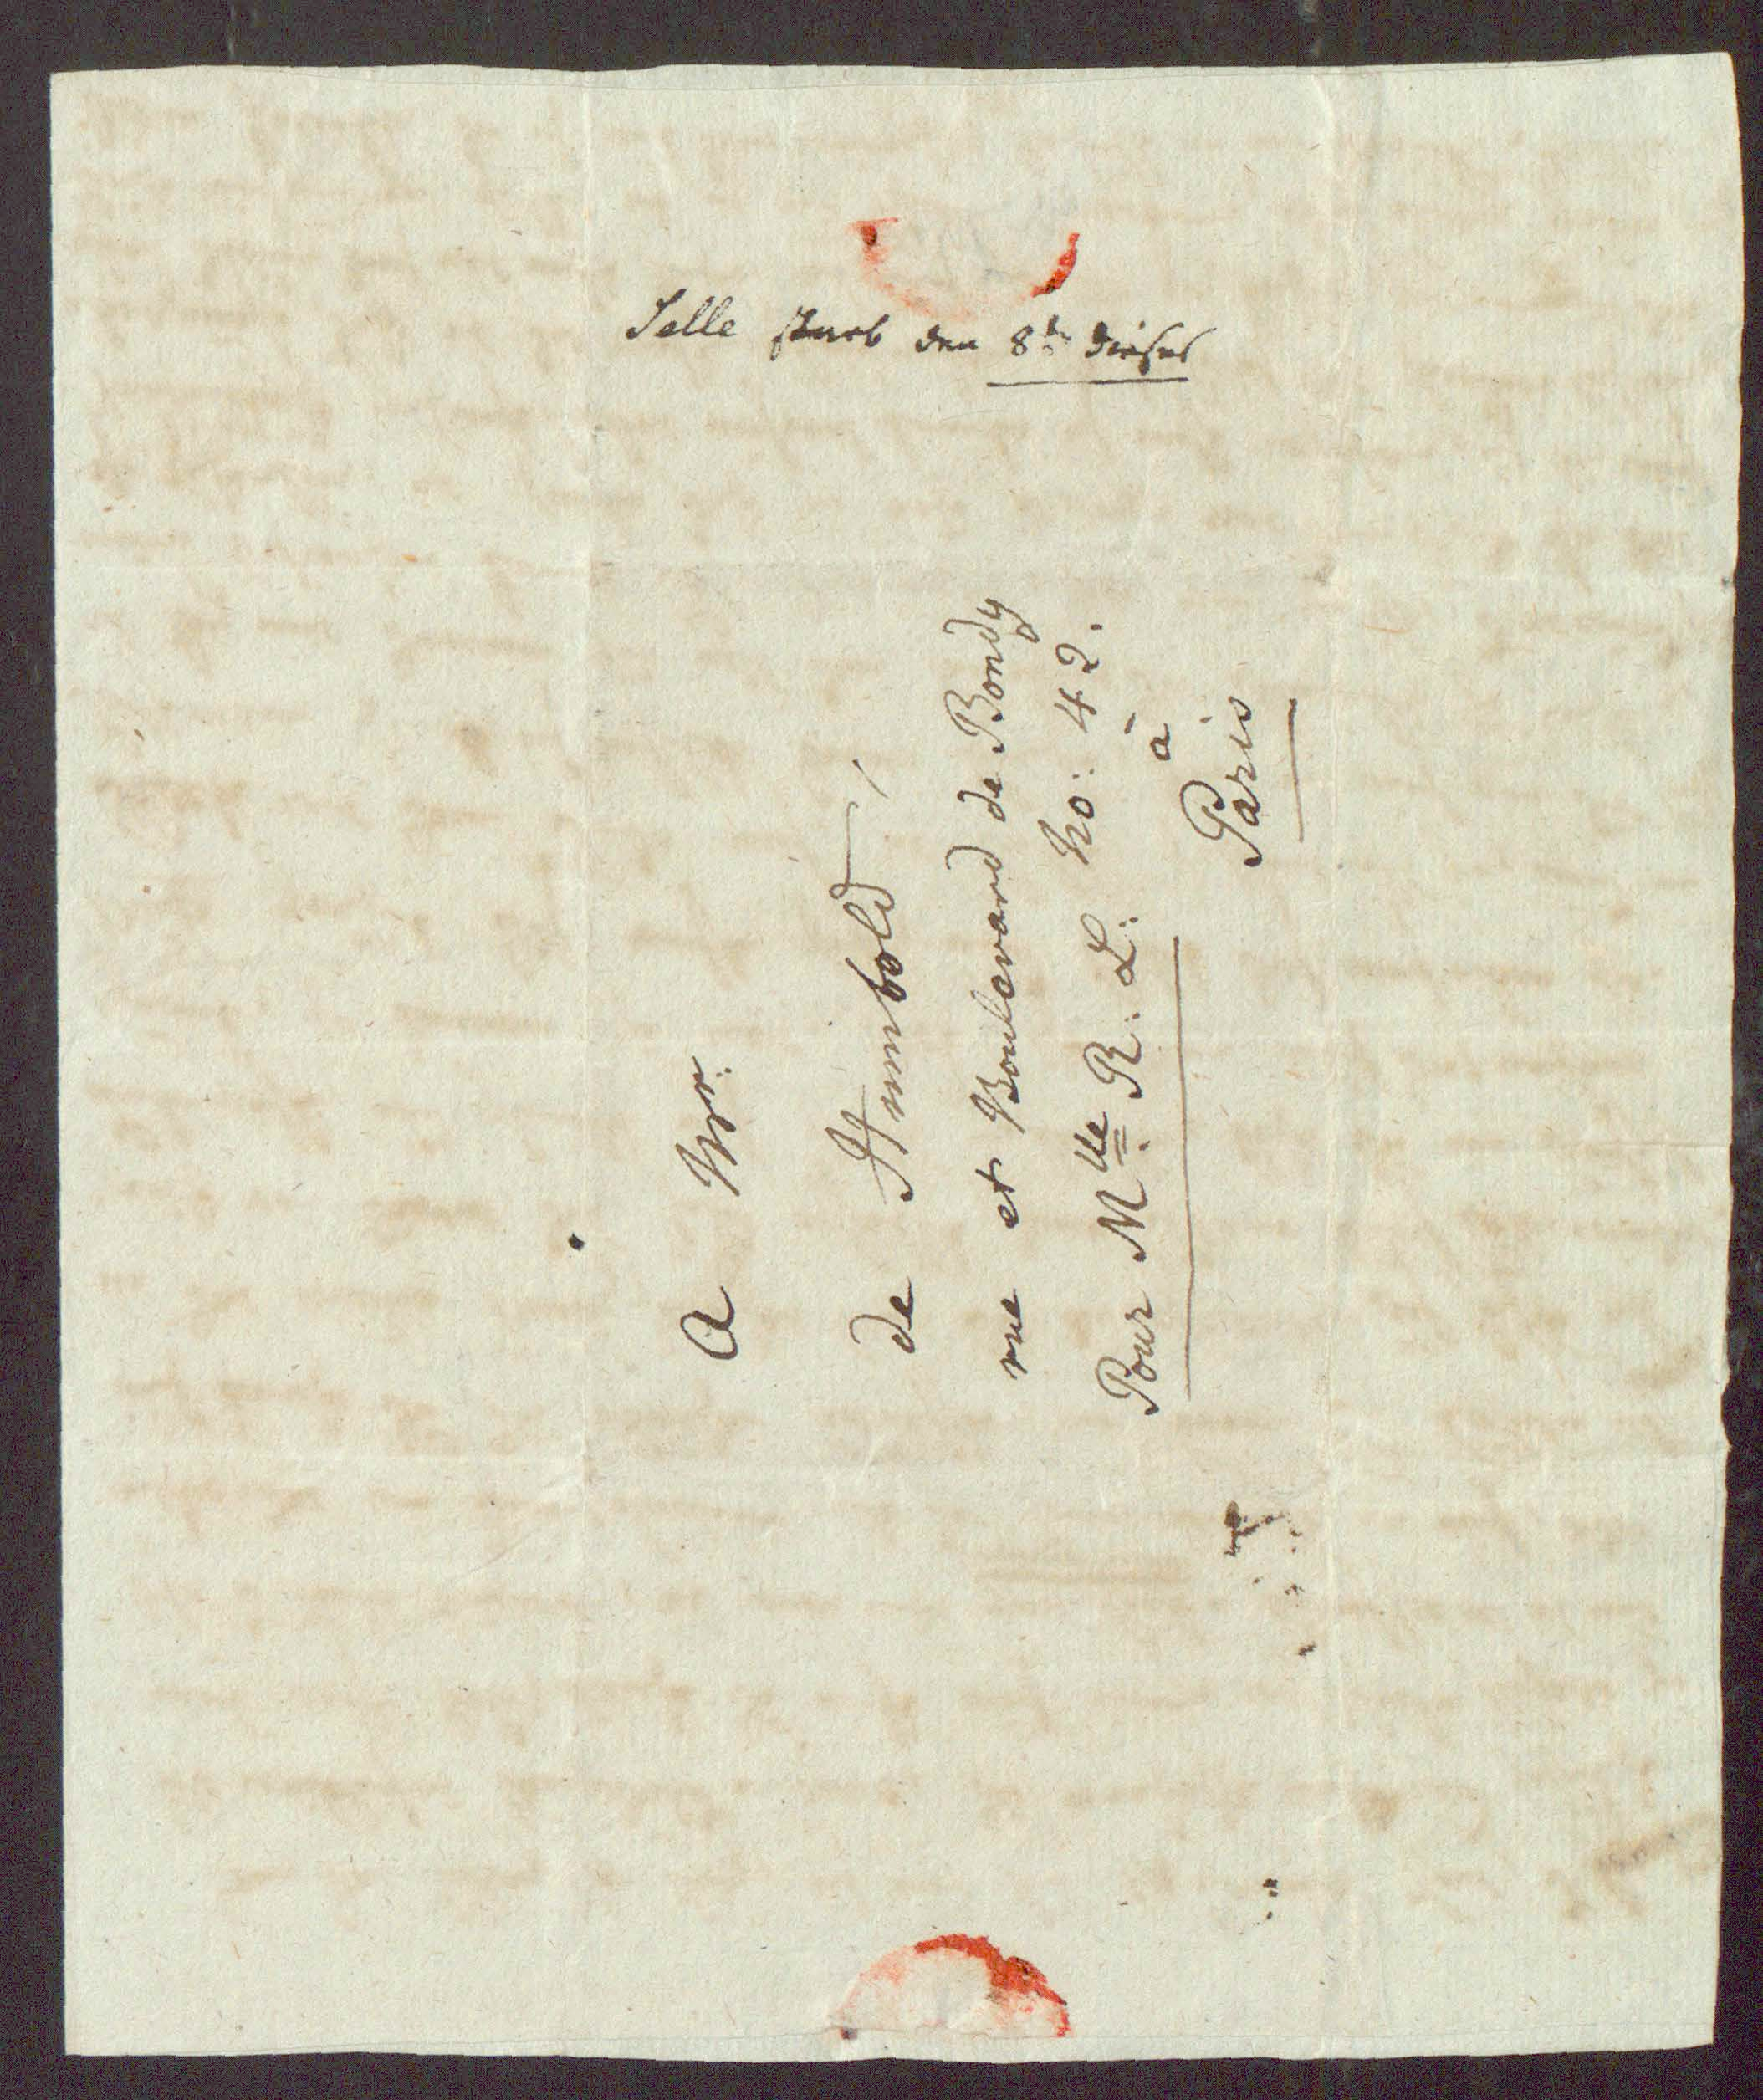 Selle starb den 8ten dieses
A Mr:
de Humbold,
rue et Boulevard de Bondy
Pour Mlle R: L: No: 42.
à
Paris